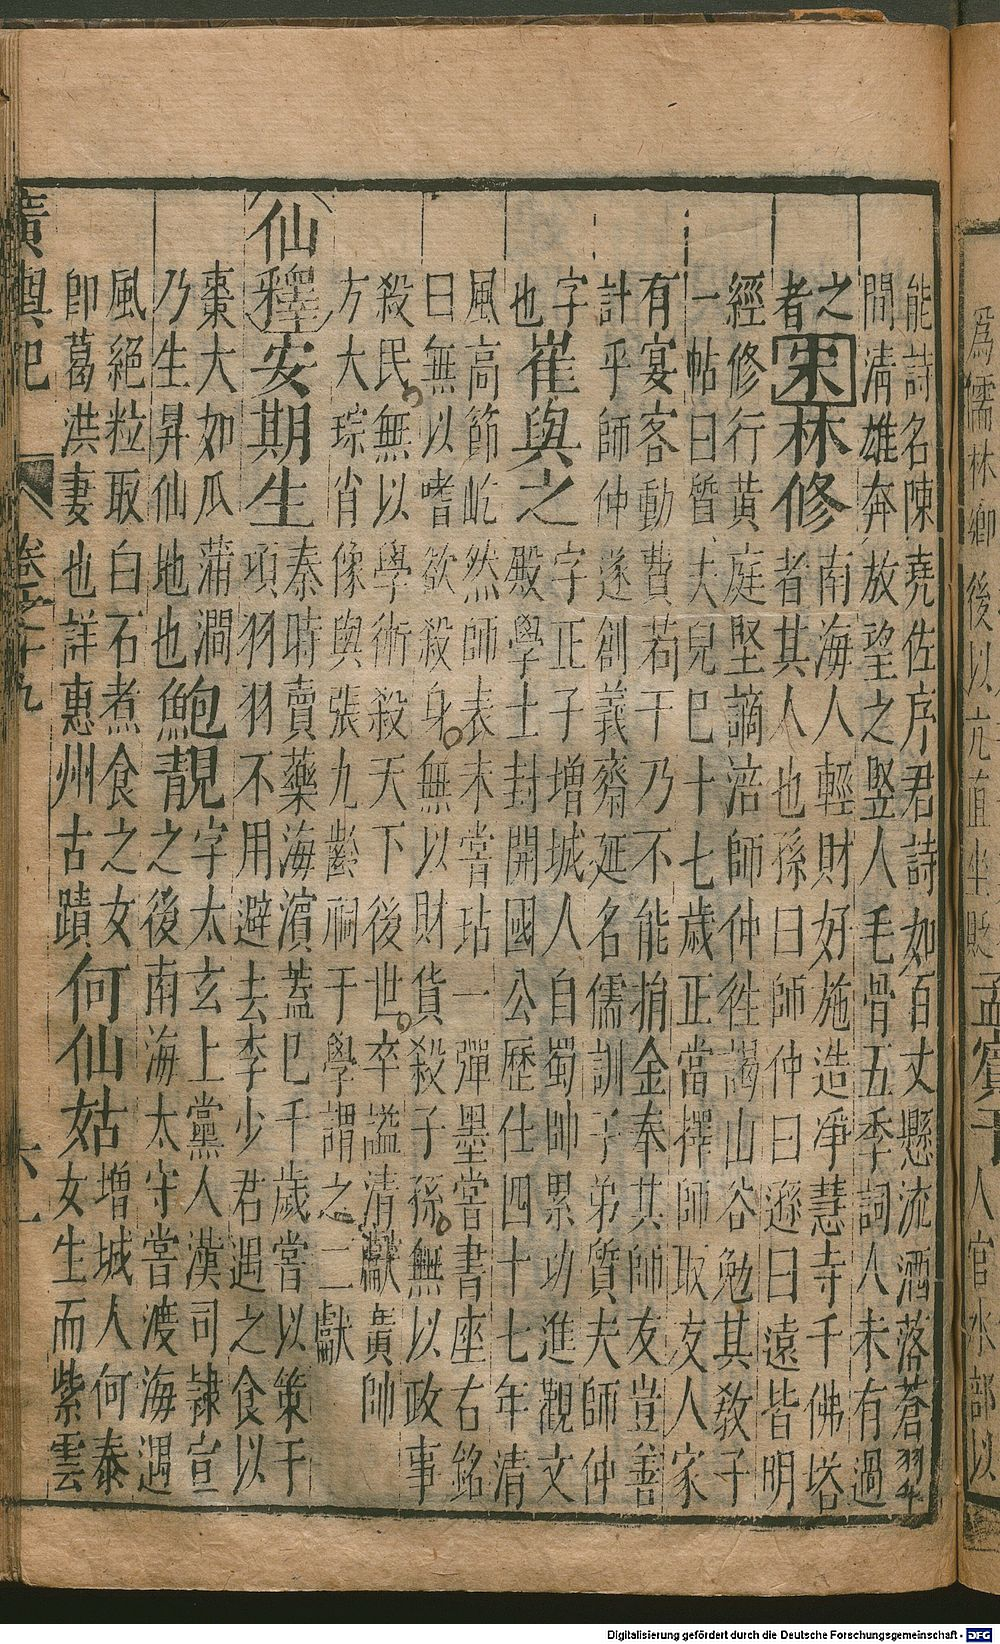 為儒林鄉後以亢直坐貶孟賓于人官水部以
能詩名陳堯佐序君詩如百丈懸流洒落蒼翠
間清雄奔放望之豎人毛骨五季詞人未有過
之者宋林修南海人輕財好施造淨慧寺千佛塔
者其人也孫曰師仲曰遜曰遠皆明
經修行黃庭堅謫涪師仲徃謁山谷勉其敎子
一帖曰質夫兒已十七歲正當擇師取友人家
有宴客動費若干乃不能捐金奉其師友豈善
計乎師仲遂創義齋延名儒訓子弟質夫師仲
字也崔與之字正子增城人自蜀帥累功進觀文
殿學士封開國公歷仕四十七年清
風高節屹然師表未嘗玷一彈墨嘗書座右銘
曰無以嗜欲殺身無以財貨殺子孫無以政事
殺民無以學術殺天下後世卒謚清獻廣帥
方大琮肖像與張九齡祠于學謂之二獻
仙釋安期生秦時賣藥海濱蓋已千歲嘗以策干
項羽羽不用避去李少君遇之食以
棗大如瓜蒲澗
乃生昇仙地也鮑靚字太玄上黨人漢司隸宣
之後南海太守嘗渡海遇
風絕粒取白石煮食之女
即葛洪妻也詳惠州古蹟何仙姑增城人何泰
女生而紫雲
廣輿記 卷之十九
Digitalisierung gefördert durch die Deutsche Forschungsgemeinschaft - DFG